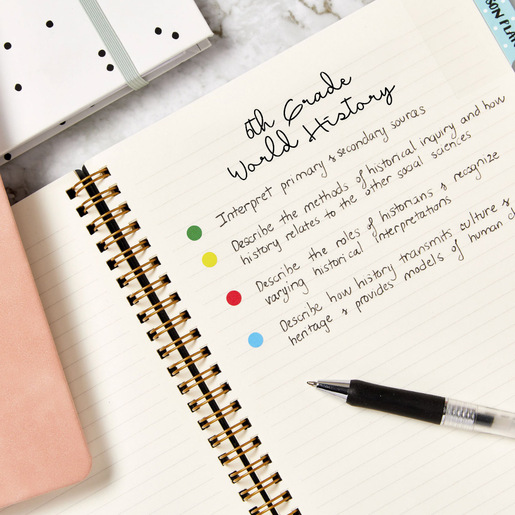 6th Grade
World History
Interpret primary & secondary sources
Describe the methods of historical inquiry and how
history relates to the other social sciences
Describe the roles of historians & recognize
varying historical interpretations
Describe how history transmits culture &
heritage & provides models of human
SON PLAN